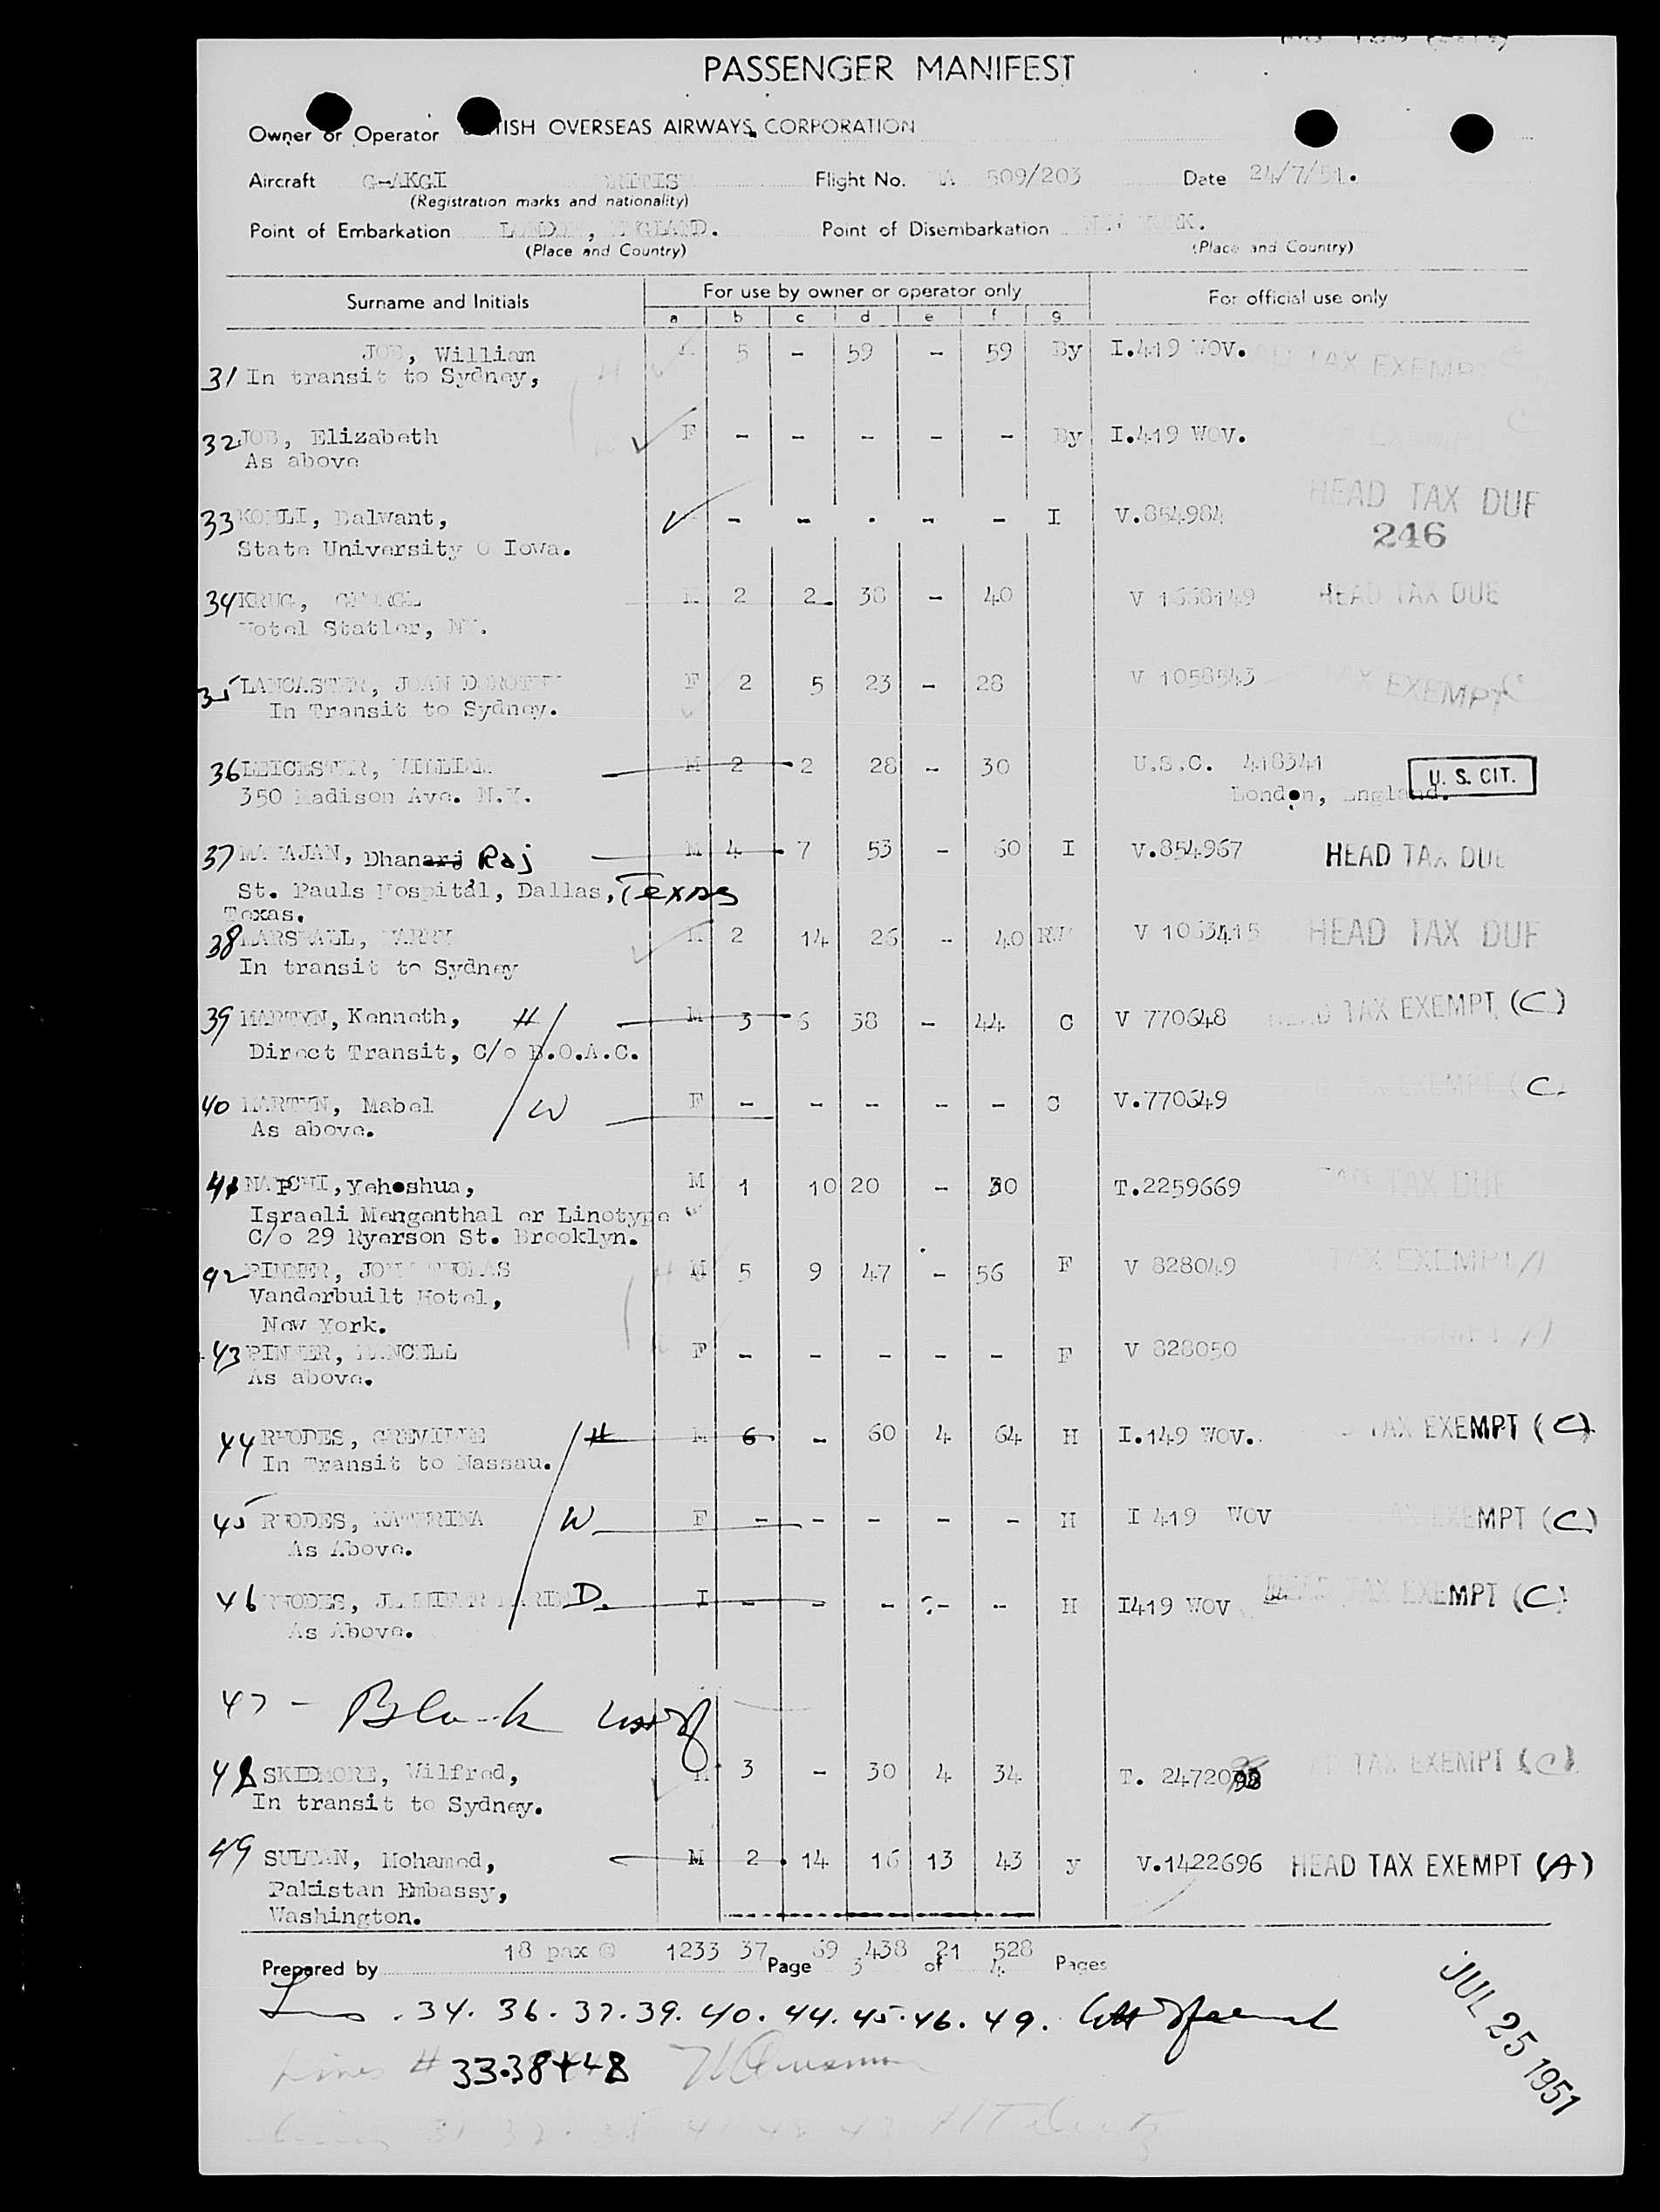 PASSENGER MANIFEST
Owner or Operator ISH OVERSEAS AIRWAYS CORPORATION
Aircraft G-AKGI Flight No. 509/203 Date 24/7/51.
(Registration marks and nationality)
Point of Embarkation LONDON, ENGLAND. Point of Disembarkation NEW YORK.
(Place and Country) (Place and Country)
Surname and Initials For use by owner or operator only For official use only
a b c d e f g
JOB, William 5 - 59 - 59 By I.419 WOV. TAX EXEMPT
31 In transit to Sydney,
32 JOB, Elizabeth F - - - - - By I.419 WOV.
As above
33 KOHLI, Dalwant, - - . - - I V.854984 HEAD TAX DUE
246
State University O Iowa.
34 KRUG, GEORGE 2 2 38 - 40 V 1338149 HEAD TAX DUE
Hotel Statler, NY.
35 LANCASTER, JOAN DOROTHY F 2 5 23 - 28 V 1058543 EXEMPT C
In Transit to Sydney.
36 LEICESTER, WILLIAM M 2 2 28 - 30 U.S.C. 418341
350 Madison Ave. N.Y. London, England. U. S. CIT.
37 MAHAJAN, Dhanarj Raj M 4 7 53 - 60 I V.854967 HEAD TAX DUE
St. Pauls Hospital, Dallas, Texas
Texas.
38 MARSHALL, HARRY 2 14 26 - 40 V 1063415 HEAD TAX DUE
In transit to Sydney
39 MARTYN, Kenneth, H M 3 6 38 - 44 C V 770648 HEAD TAX EXEMPT (C)
Direct Transit, C/o B.O.A.C.
40 MARTYN, Mabel W F - - - - - C V.770649 C
As above.
41 Yehoshua, M 1 10 20 - 30 T.2259669 TAX DUE
Israeli Mengenthal er Linotype
C/o 29 Ryerson St. Brooklyn.
42 PINNER, JOHN THOMAS M 5 9 47 - 56 F V 828049 TAX EXEMPT A
Vanderbuilt Hotel,
New York.
43 PINNER, F - - - - - F V 828050
As above.
44 RHODES, GREVILLE H M 6 - 60 4 64 H I.149 WOV. TAX EXEMPT (C)
In Transit to Nassau.
45 RHODES, KATHRINA W F - - - - - H I 419 WOV EXEMPT (C)
As Above.
46 RHODES, D. I - - - - - H I419 WOV HEAD TAX EXEMPT (C)
As Above.
47 - Blank
48 SKIDMORE, Wilfred, 3 - 30 4 34 T. 24720 TAX EXEMPT (C)
In transit to Sydney.
49 SULTAN, Mohamed, M 2 14 16 13 43 y V.1422696 HEAD TAX EXEMPT (A)
Pakistan Embassy,
Washington.
18 pax @ 1233 37 69 438 21 528
Prepared by Page 3 of 4 Pages
. 34. 36. 37. 39. 40. 44. 45. 46. 49.
Lines # 33.38+48
JUL 25 1951